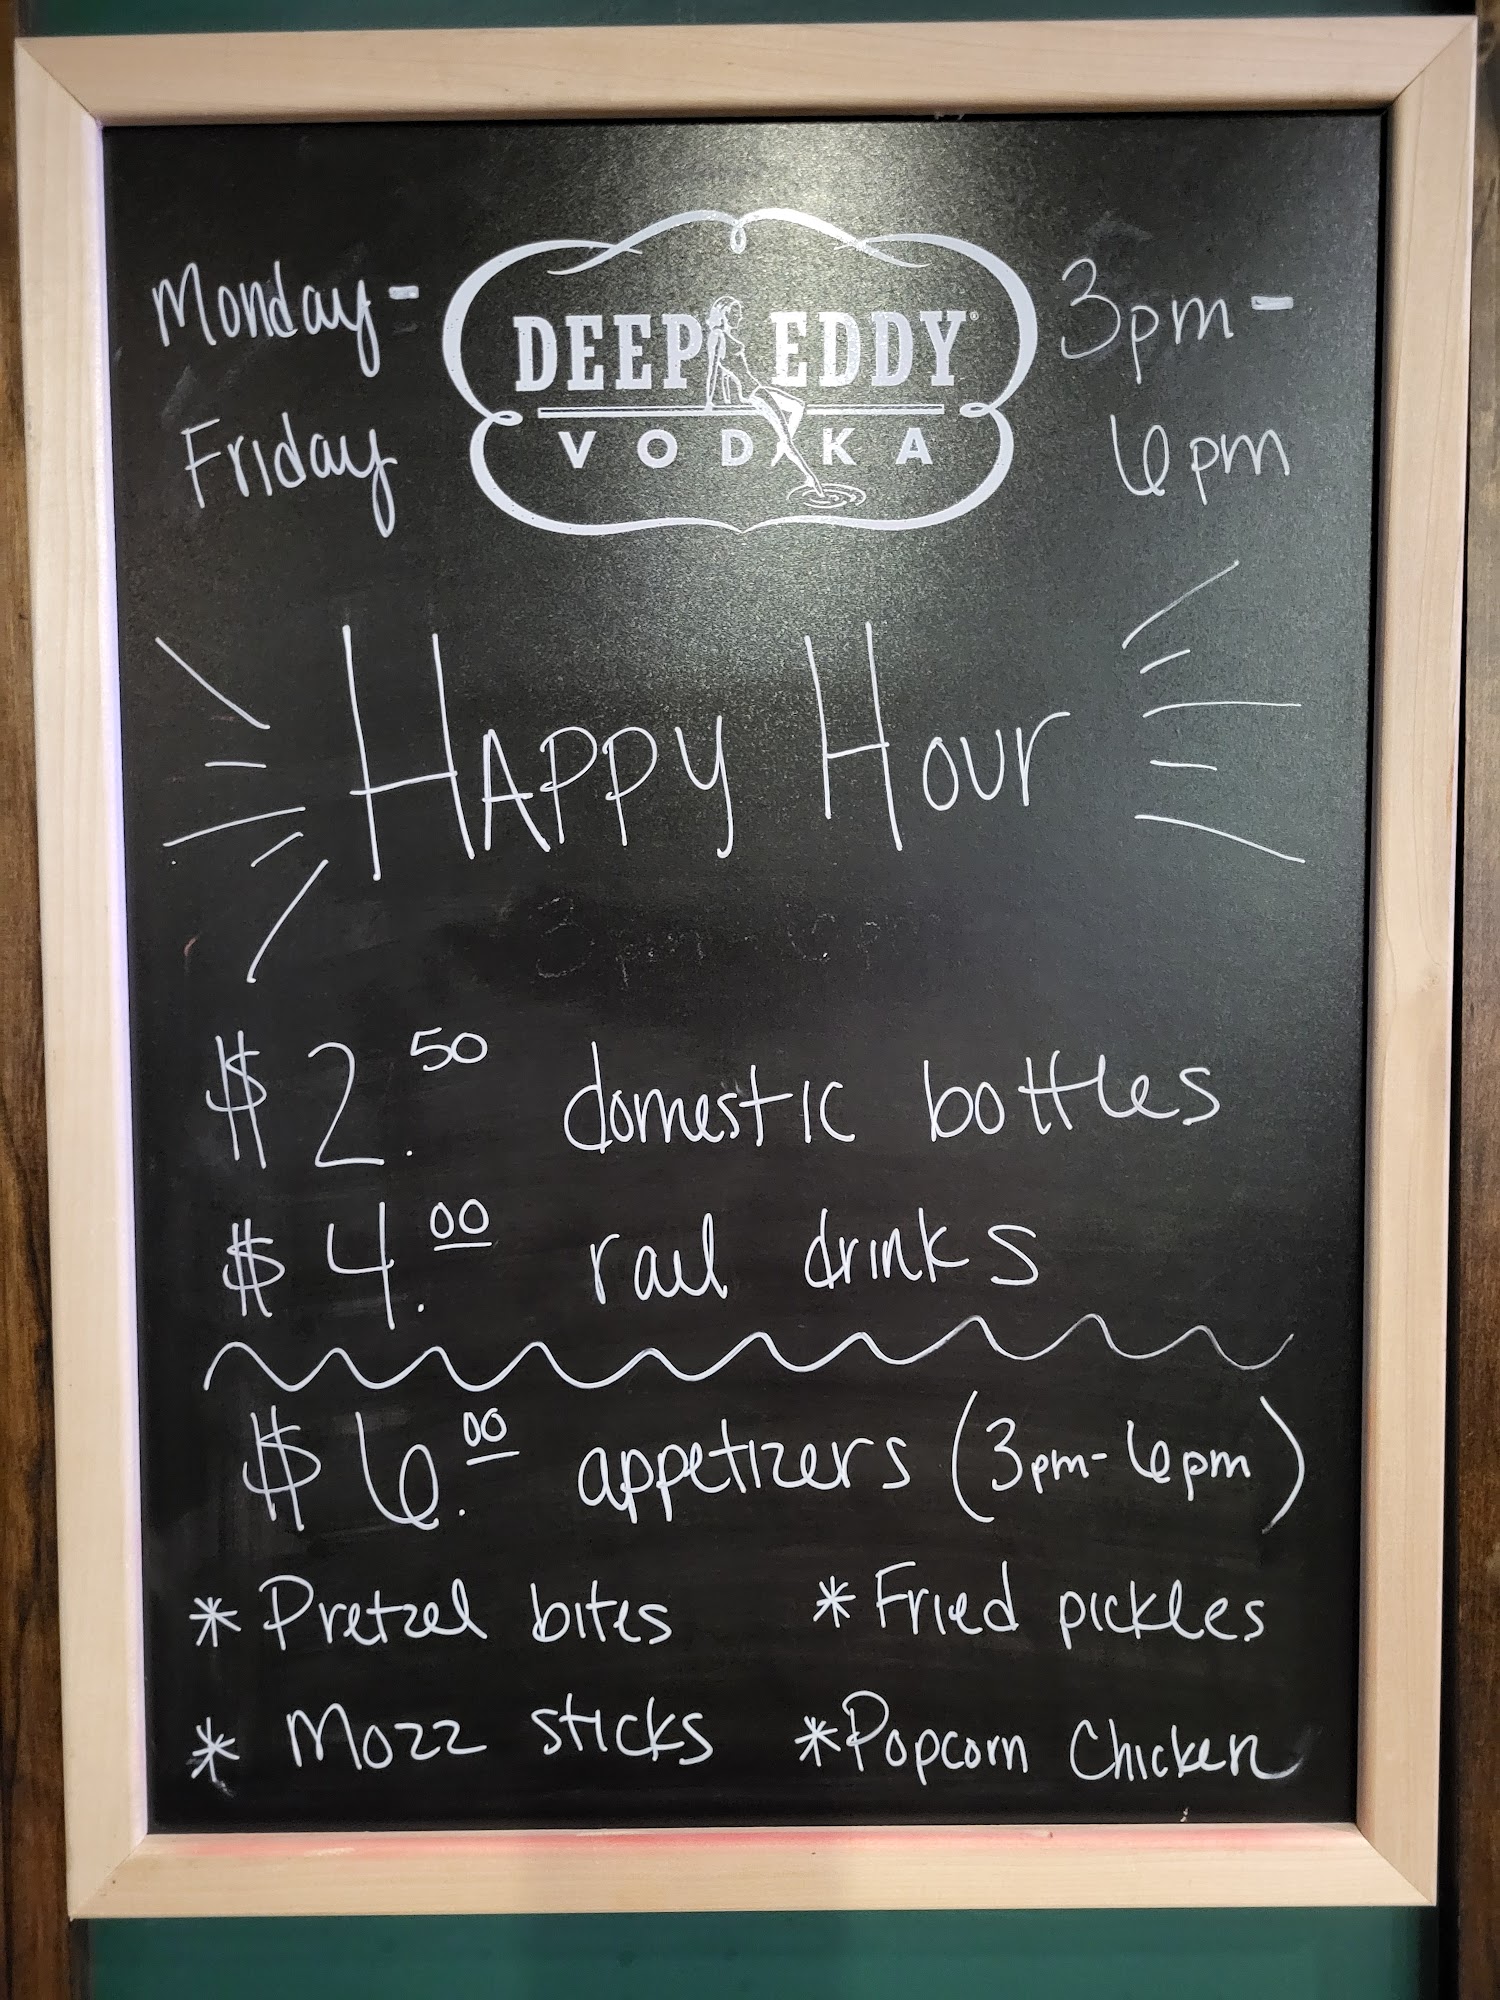 Monday-
Friday
DEEP EDDY®
VODKA
3pm-
6pm
Happy Hour
$2.50 domestic bottles
$4.00 rail drinks
$6.00 appetizers (3pm-6pm)
* Pretzel bites
* Fried pickles
* Mozz sticks
* Popcorn Chicken